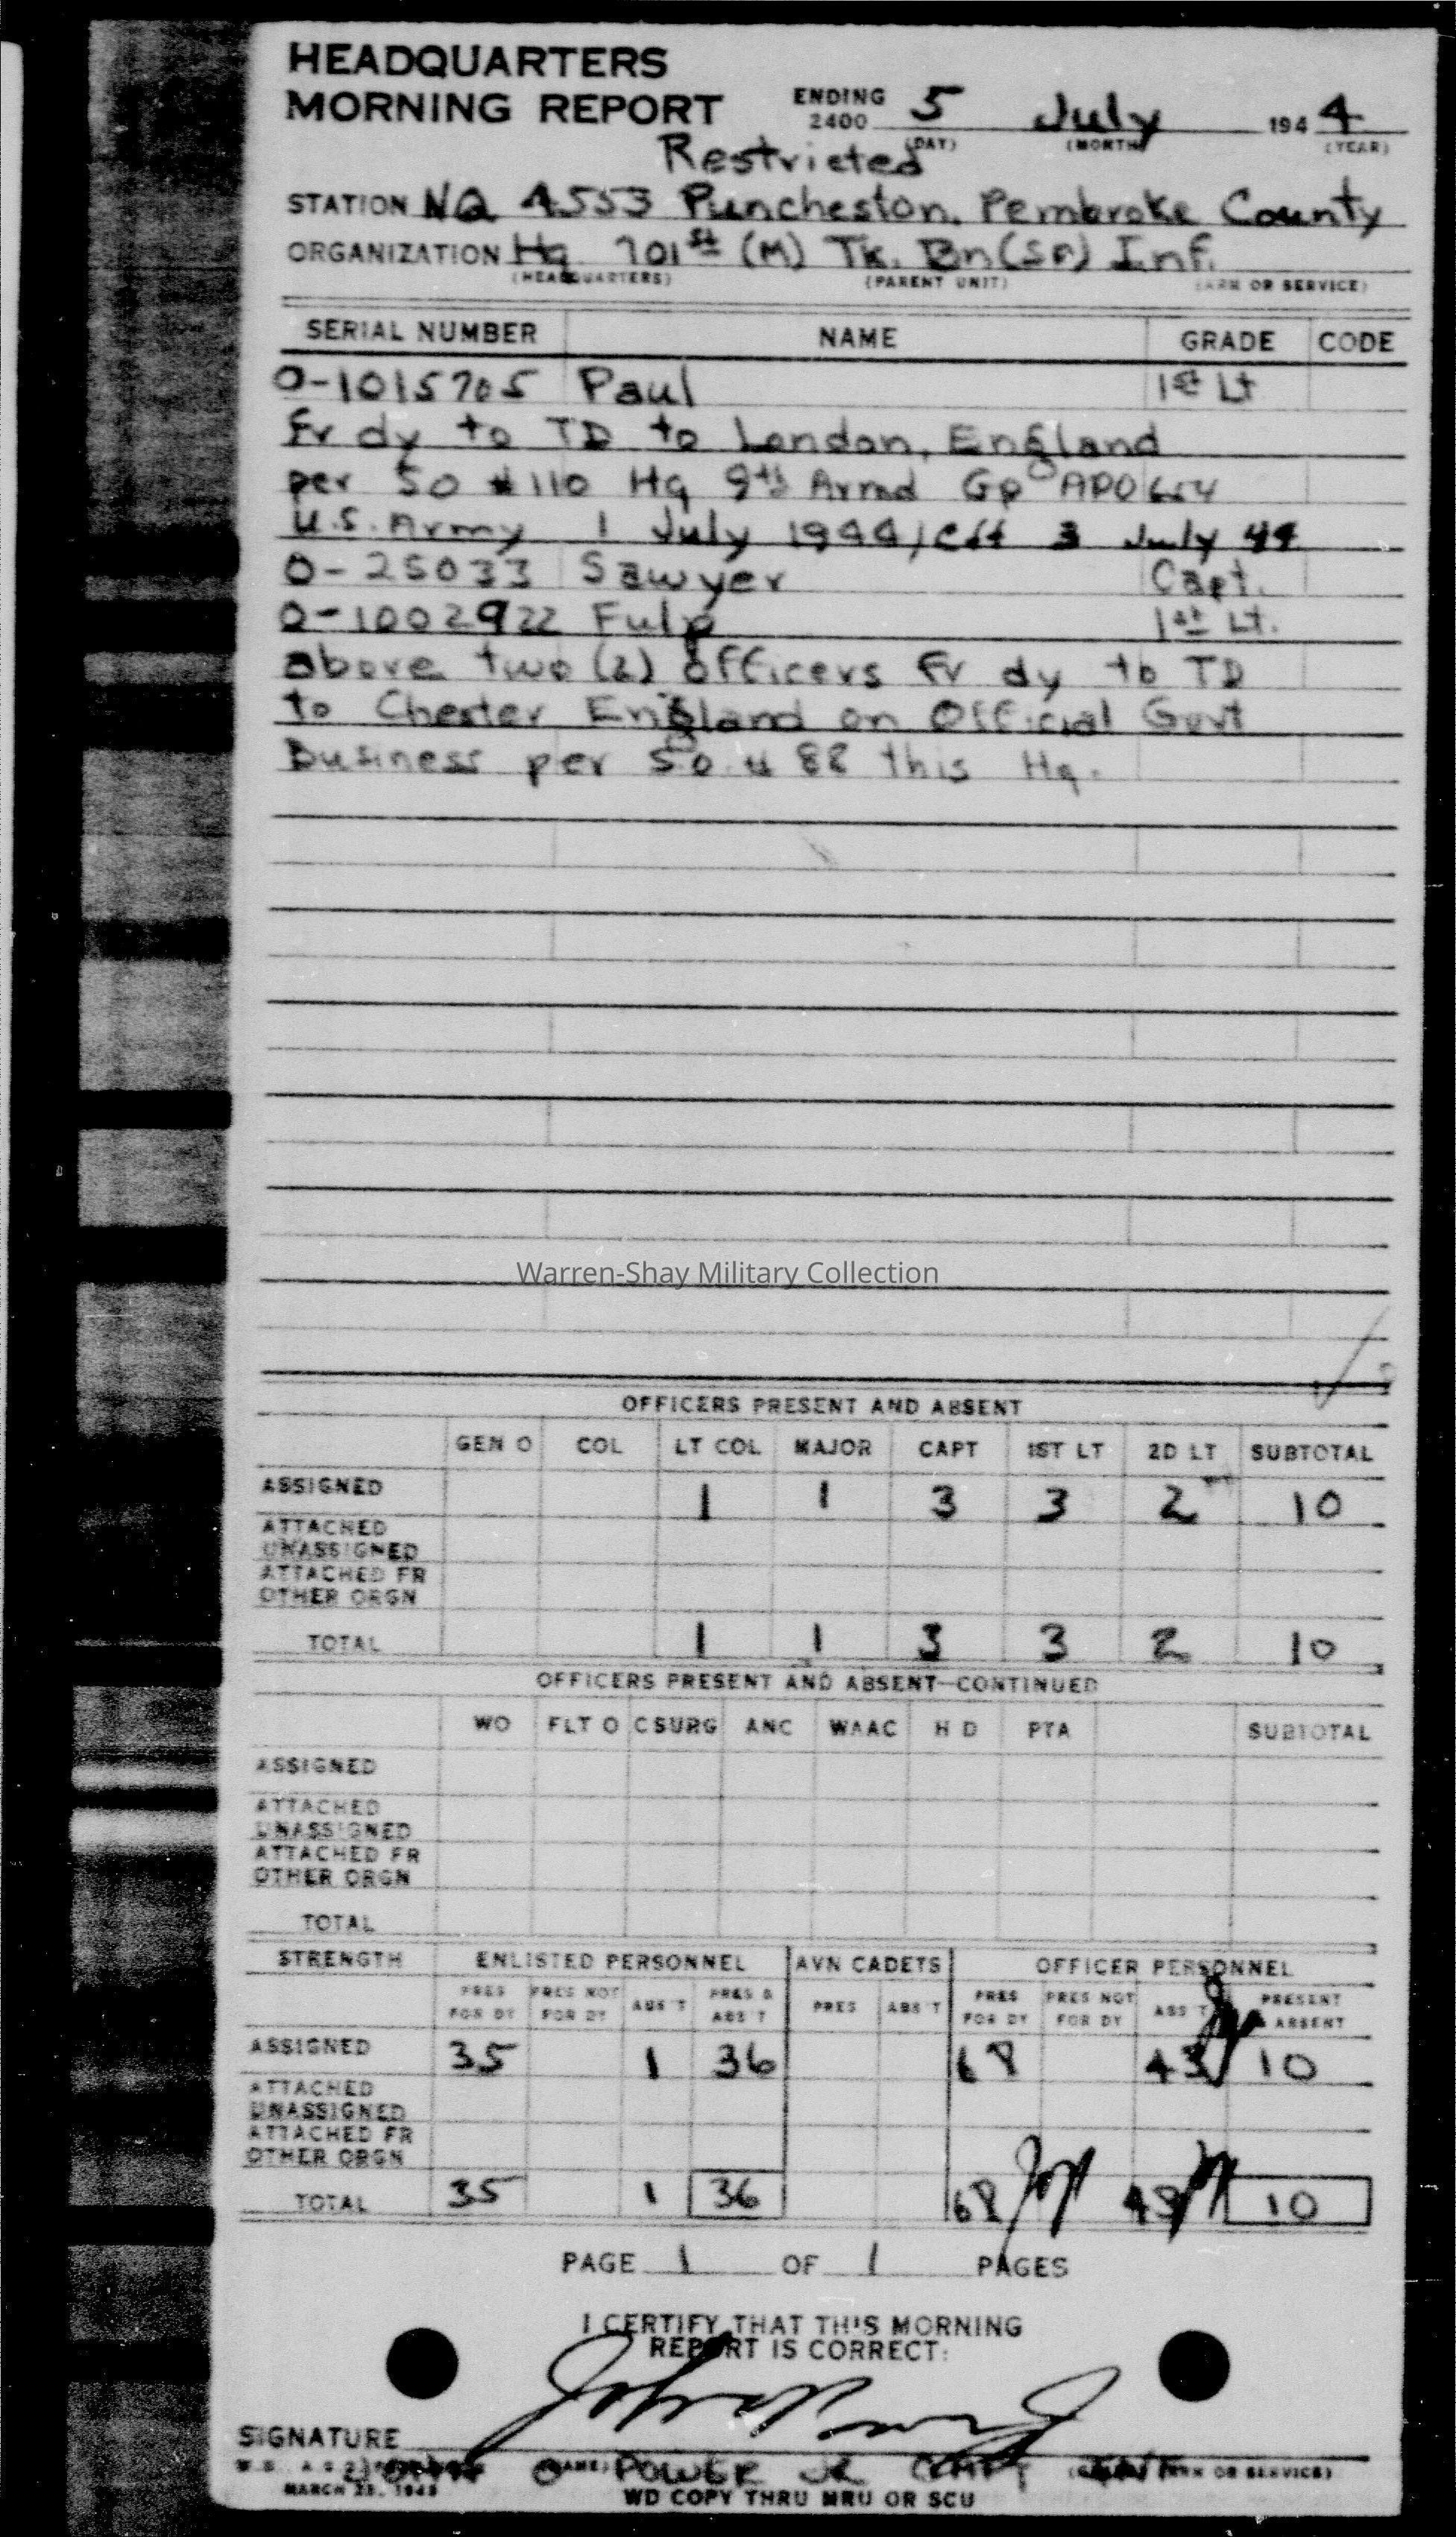 HEADQUARTERS
MORNING REPORT ENDING 2400 5 July 1944
(DAY) (MONTH) (YEAR)
Restricted
STATION VQ 4553 Puncheston, Pembroke County
ORGANIZATION Hq 701st (M) Tk. Bn (SP) Inf.
(HEADQUARTERS) (PARENT UNIT) (ARM OR SERVICE)
SERIAL NUMBER NAME GRADE CODE
O-1015705 Paul 1st Lt
Fr dy to TD to London, England
per SO #110 Hq 9th Armd Gp APO 654
U.S. Army 1 July 1944, eff 3 July 44
O-25033 Sawyer Capt.
O-1002922 Fulp 1st Lt.
above two (2) officers fr dy to TD
to Chester England on Official Govt
Business per SO # 88 this Hq.
Warren-Shay Military Collection
OFFICERS PRESENT AND ABSENT
GEN O COL LT COL MAJOR CAPT 1ST LT 2D LT SUBTOTAL
ASSIGNED 1 1 3 3 2 10
ATTACHED UNASSIGNED
ATTACHED FR OTHER ORGN
TOTAL 1 1 3 3 2 10
OFFICERS PRESENT AND ABSENT—CONTINUED
WO FLT O C SURG ANC WAAC H D PTA SUBTOTAL
ASSIGNED
ATTACHED UNASSIGNED
ATTACHED FR OTHER ORGN
TOTAL
STRENGTH ENLISTED PERSONNEL AVN CADETS OFFICER PERSONNEL
PRES FOR DY PRES NOT FOR DY ABS'T PRES & ABS'T PRES ABS'T PRES FOR DY PRES NOT FOR DY ABS'T PRESENT ABSENT
ASSIGNED 35 1 36 10
ATTACHED UNASSIGNED
ATTACHED FR OTHER ORGN
TOTAL 35 1 36 10
PAGE 1 OF 1 PAGES
I CERTIFY THAT THIS MORNING
REPORT IS CORRECT:
SIGNATURE
(NAME) POWER JR CAPT INF (ARM OR SERVICE)
MARCH 23, 1943
WD COPY THRU MRU OR SCU